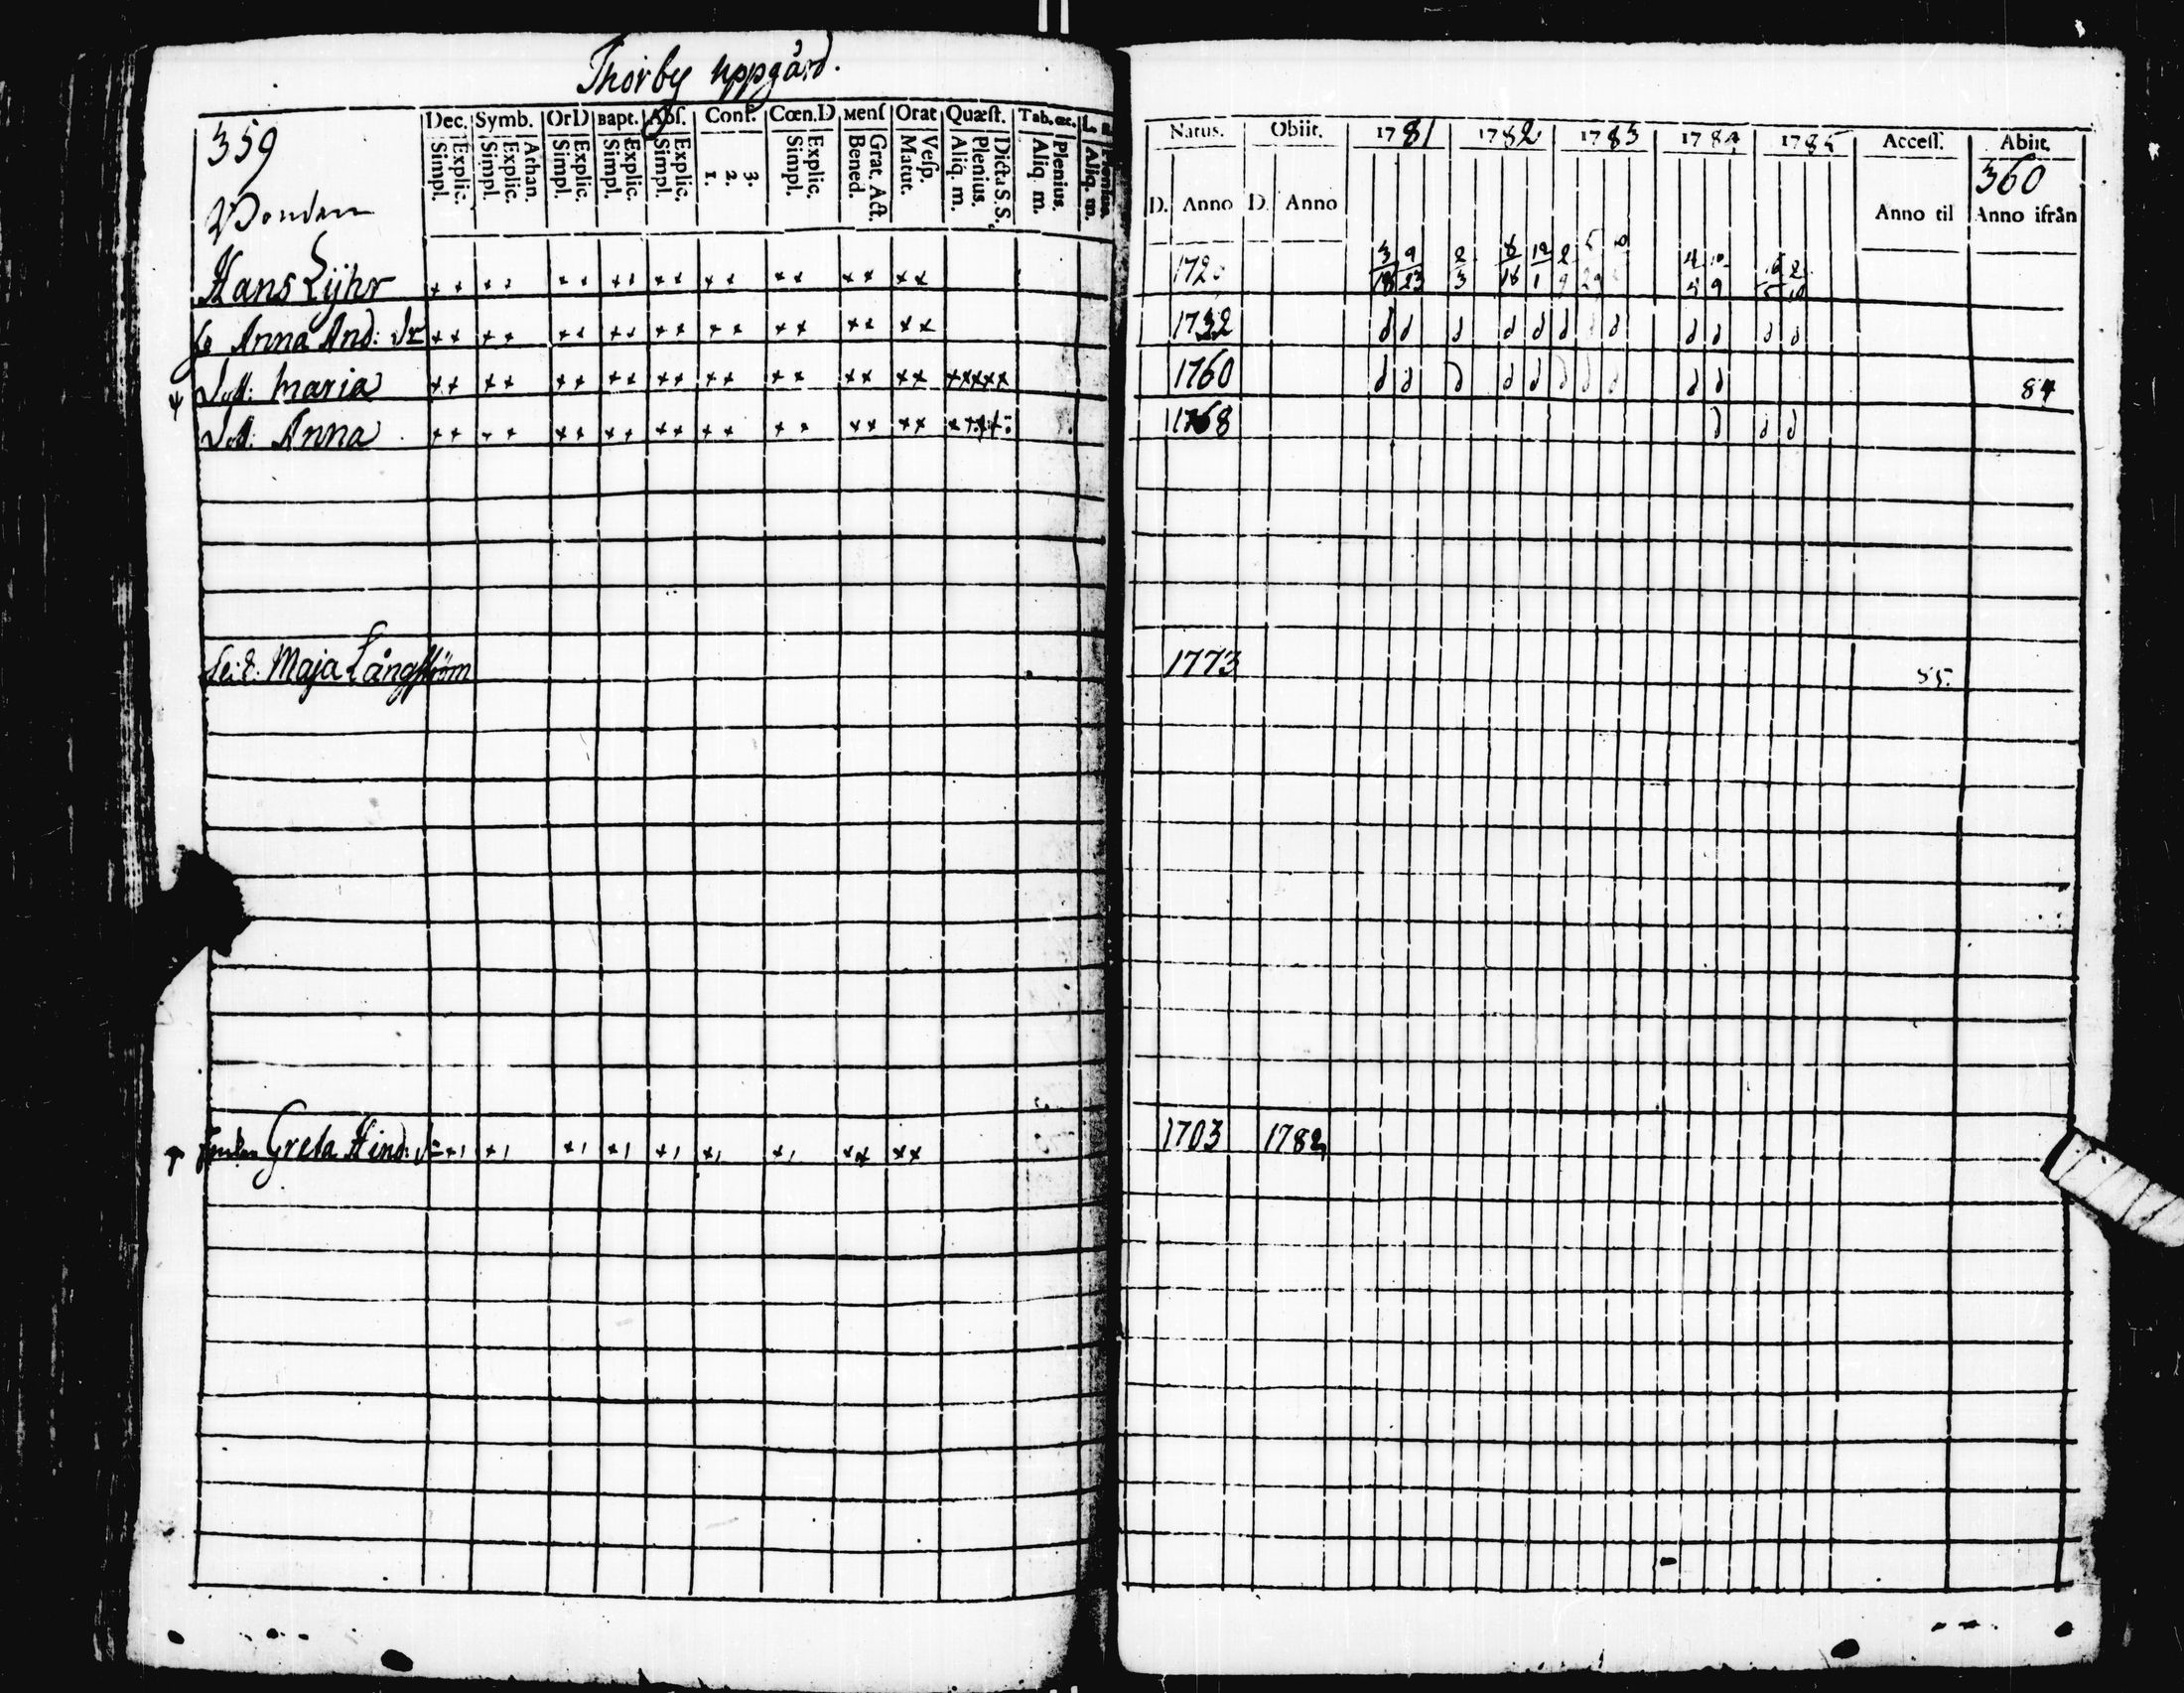 Thörby uppgård.
359
Dec. Symb. OrD Bapt. Abſ. Conf. Cœn.D Menſ Orat Quæſt. Tab.œc.
Explic. Simpl. Athan. Explic. Simpl. Explic. Simpl. Explic. Simpl. Explic. Simpl. 3. 2. 1. Explic. Simpl. Grat. Act. Bened. Veſp. Matut. Dicta S.S. Plenius. Aliq. m. Plenius. Aliq. m. Plenius. Aliq. m.
Natus. Obiit. 1781 1782 1783 1784 1785 Acceſſ. Abiit.
360
D. Anno D. Anno Anno til Anno ifrån
3/18 9/23 2/3 6/16 12/1 2/9 5/29 10 4/4 10/9
Hans Lijhr ×× ×× ×× ×× ×× ×× ×× ×× ××
Anna And: dr ×× ×× ×× ×× ×× ×× ×× ×× ×× 1732
maria ×× ×× ×× ×× ×× ×× ×× ×× ×× ××××× 1760 84
Anna ×× ×× ×× ×× ×× ×× ×× ×× ×× 1768
Maja Långström 1773 85.
Greta Hind: dr ×× ×× 1703 1782